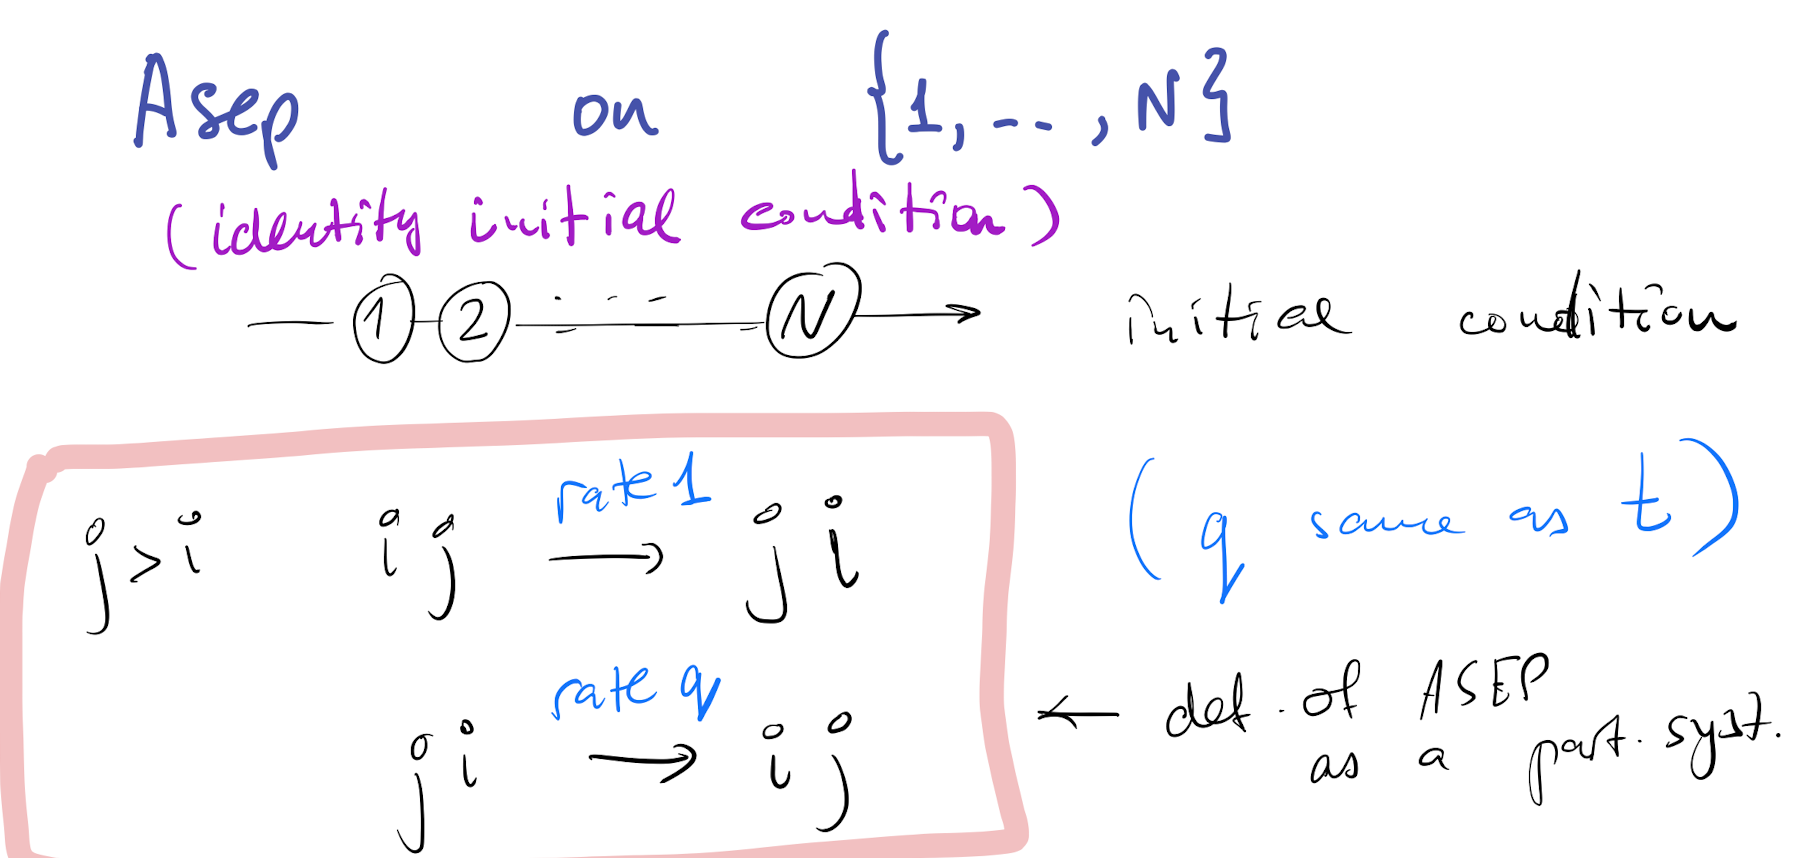 Asep on {1, -- , N}
(identity initial condition)
1 2 - - - N initial condition
j > i i j rate 1 → j i (q same as t)
j i rate q → i j ← def. of ASEP
as a part. syst.